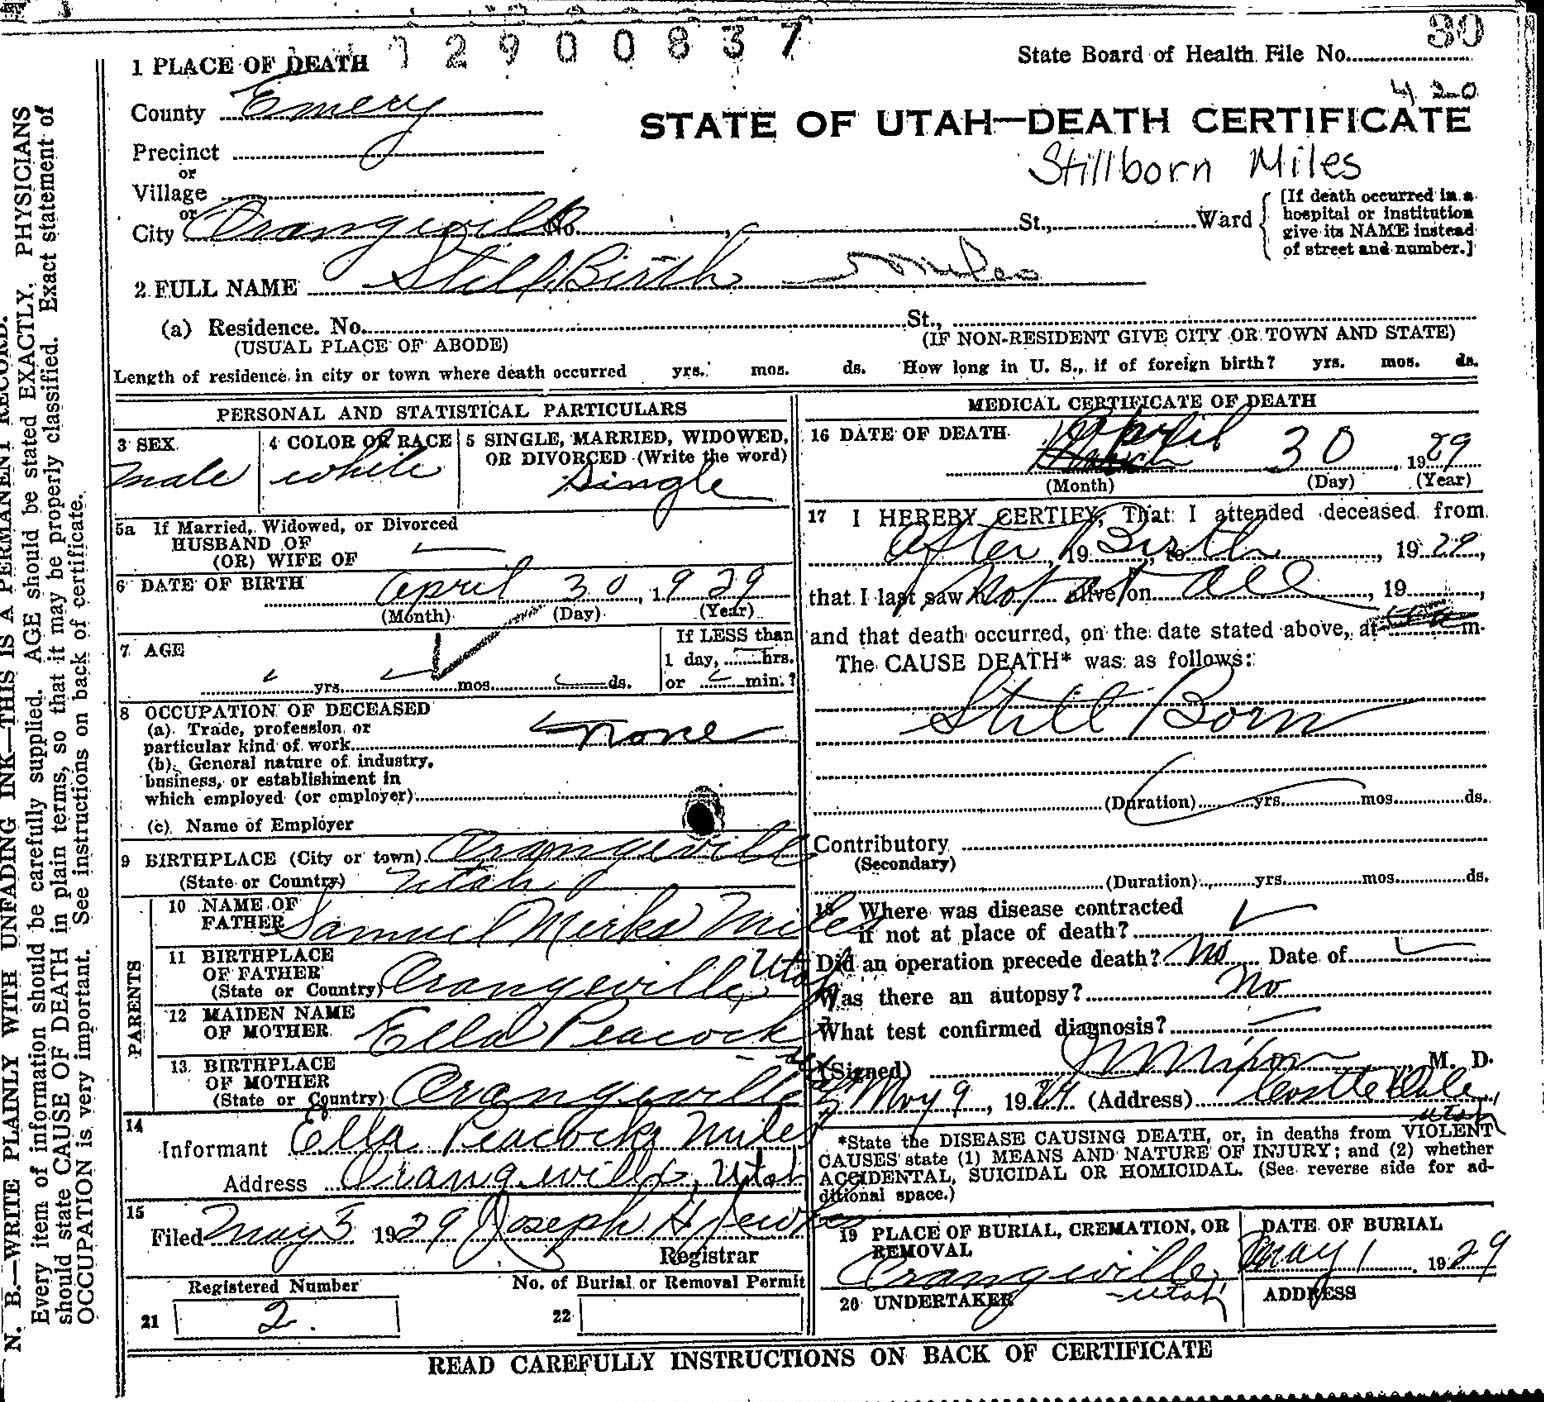 2900837
30
1 PLACE OF DEATH
State Board of Health File No.
420
County Emery
STATE OF UTAH—DEATH CERTIFICATE
Precinct
or
Stillborn Miles
Village
or
City Orangeville No. St., Ward
[If death occurred in a hospital or institution give its NAME instead of street and number.]
2 FULL NAME Still Birth Miles
(a) Residence. No. St.,
(USUAL PLACE OF ABODE) (IF NON-RESIDENT GIVE CITY OR TOWN AND STATE)
Length of residence in city or town where death occurred yrs. mos. ds. How long in U. S., if of foreign birth? yrs. mos. ds.
PERSONAL AND STATISTICAL PARTICULARS
3 SEX 4 COLOR OR RACE 5 SINGLE, MARRIED, WIDOWED, OR DIVORCED (Write the word)
male white Single
5a If Married, Widowed, or Divorced
HUSBAND OF
(OR) WIFE OF
6 DATE OF BIRTH April 30, 1929
(Month) (Day) (Year)
7 AGE
yrs. mos. ds.
If LESS than
1 day, hrs.
or min.?
8 OCCUPATION OF DECEASED
(a) Trade, profession or
particular kind of work none
(b) General nature of industry,
business, or establishment in
which employed (or employer)
(c) Name of Employer
9 BIRTHPLACE (City or town) Orangeville
(State or Country) Utah
PARENTS
10 NAME OF FATHER Samuel Mirks Miles
11 BIRTHPLACE OF FATHER
(State or Country) Orangeville, Utah
12 MAIDEN NAME OF MOTHER Ella Peacock
13 BIRTHPLACE OF MOTHER
(State or Country) Orangeville
14
Informant Ella Peacock Miles
Address Orangeville, Utah
15
Filed May 5 1929 Joseph H Jewkes
Registrar
Registered Number No. of Burial or Removal Permit
21 2. 22
MEDICAL CERTIFICATE OF DEATH
16 DATE OF DEATH April 30, 1929
(Month) (Day) (Year)
17 I HEREBY CERTIFY, That I attended deceased from
After, 19 Birth, to, 1929,
that I last saw h not at alive on all, 19,
and that death occurred, on the date stated above, at m.
The CAUSE DEATH* was as follows:
Still Born
(Duration) yrs. mos. ds.
Contributory
(Secondary)
(Duration) yrs. mos. ds.
18 Where was disease contracted
if not at place of death?
Did an operation precede death? No Date of
Was there an autopsy? No
What test confirmed diagnosis?
(Signed) M. D.
May 9, 1929 (Address) Castle Dale, Utah
*State the DISEASE CAUSING DEATH, or, in deaths from VIOLENT
CAUSES state (1) MEANS AND NATURE OF INJURY; and (2) whether
ACCIDENTAL, SUICIDAL OR HOMICIDAL. (See reverse side for ad-
ditional space.)
19 PLACE OF BURIAL, CREMATION, OR REMOVAL DATE OF BURIAL
Orangeville, Utah May 1, 1929
20 UNDERTAKER ADDRESS
READ CAREFULLY INSTRUCTIONS ON BACK OF CERTIFICATE
N. B.—WRITE PLAINLY WITH UNFADING INK—THIS IS A PERMANENT RECORD.
Every item of information should be carefully supplied. AGE should be stated EXACTLY. PHYSICIANS
should state CAUSE OF DEATH in plain terms, so that it may be properly classified. Exact statement of
OCCUPATION is very important. See instructions on back of certificate.